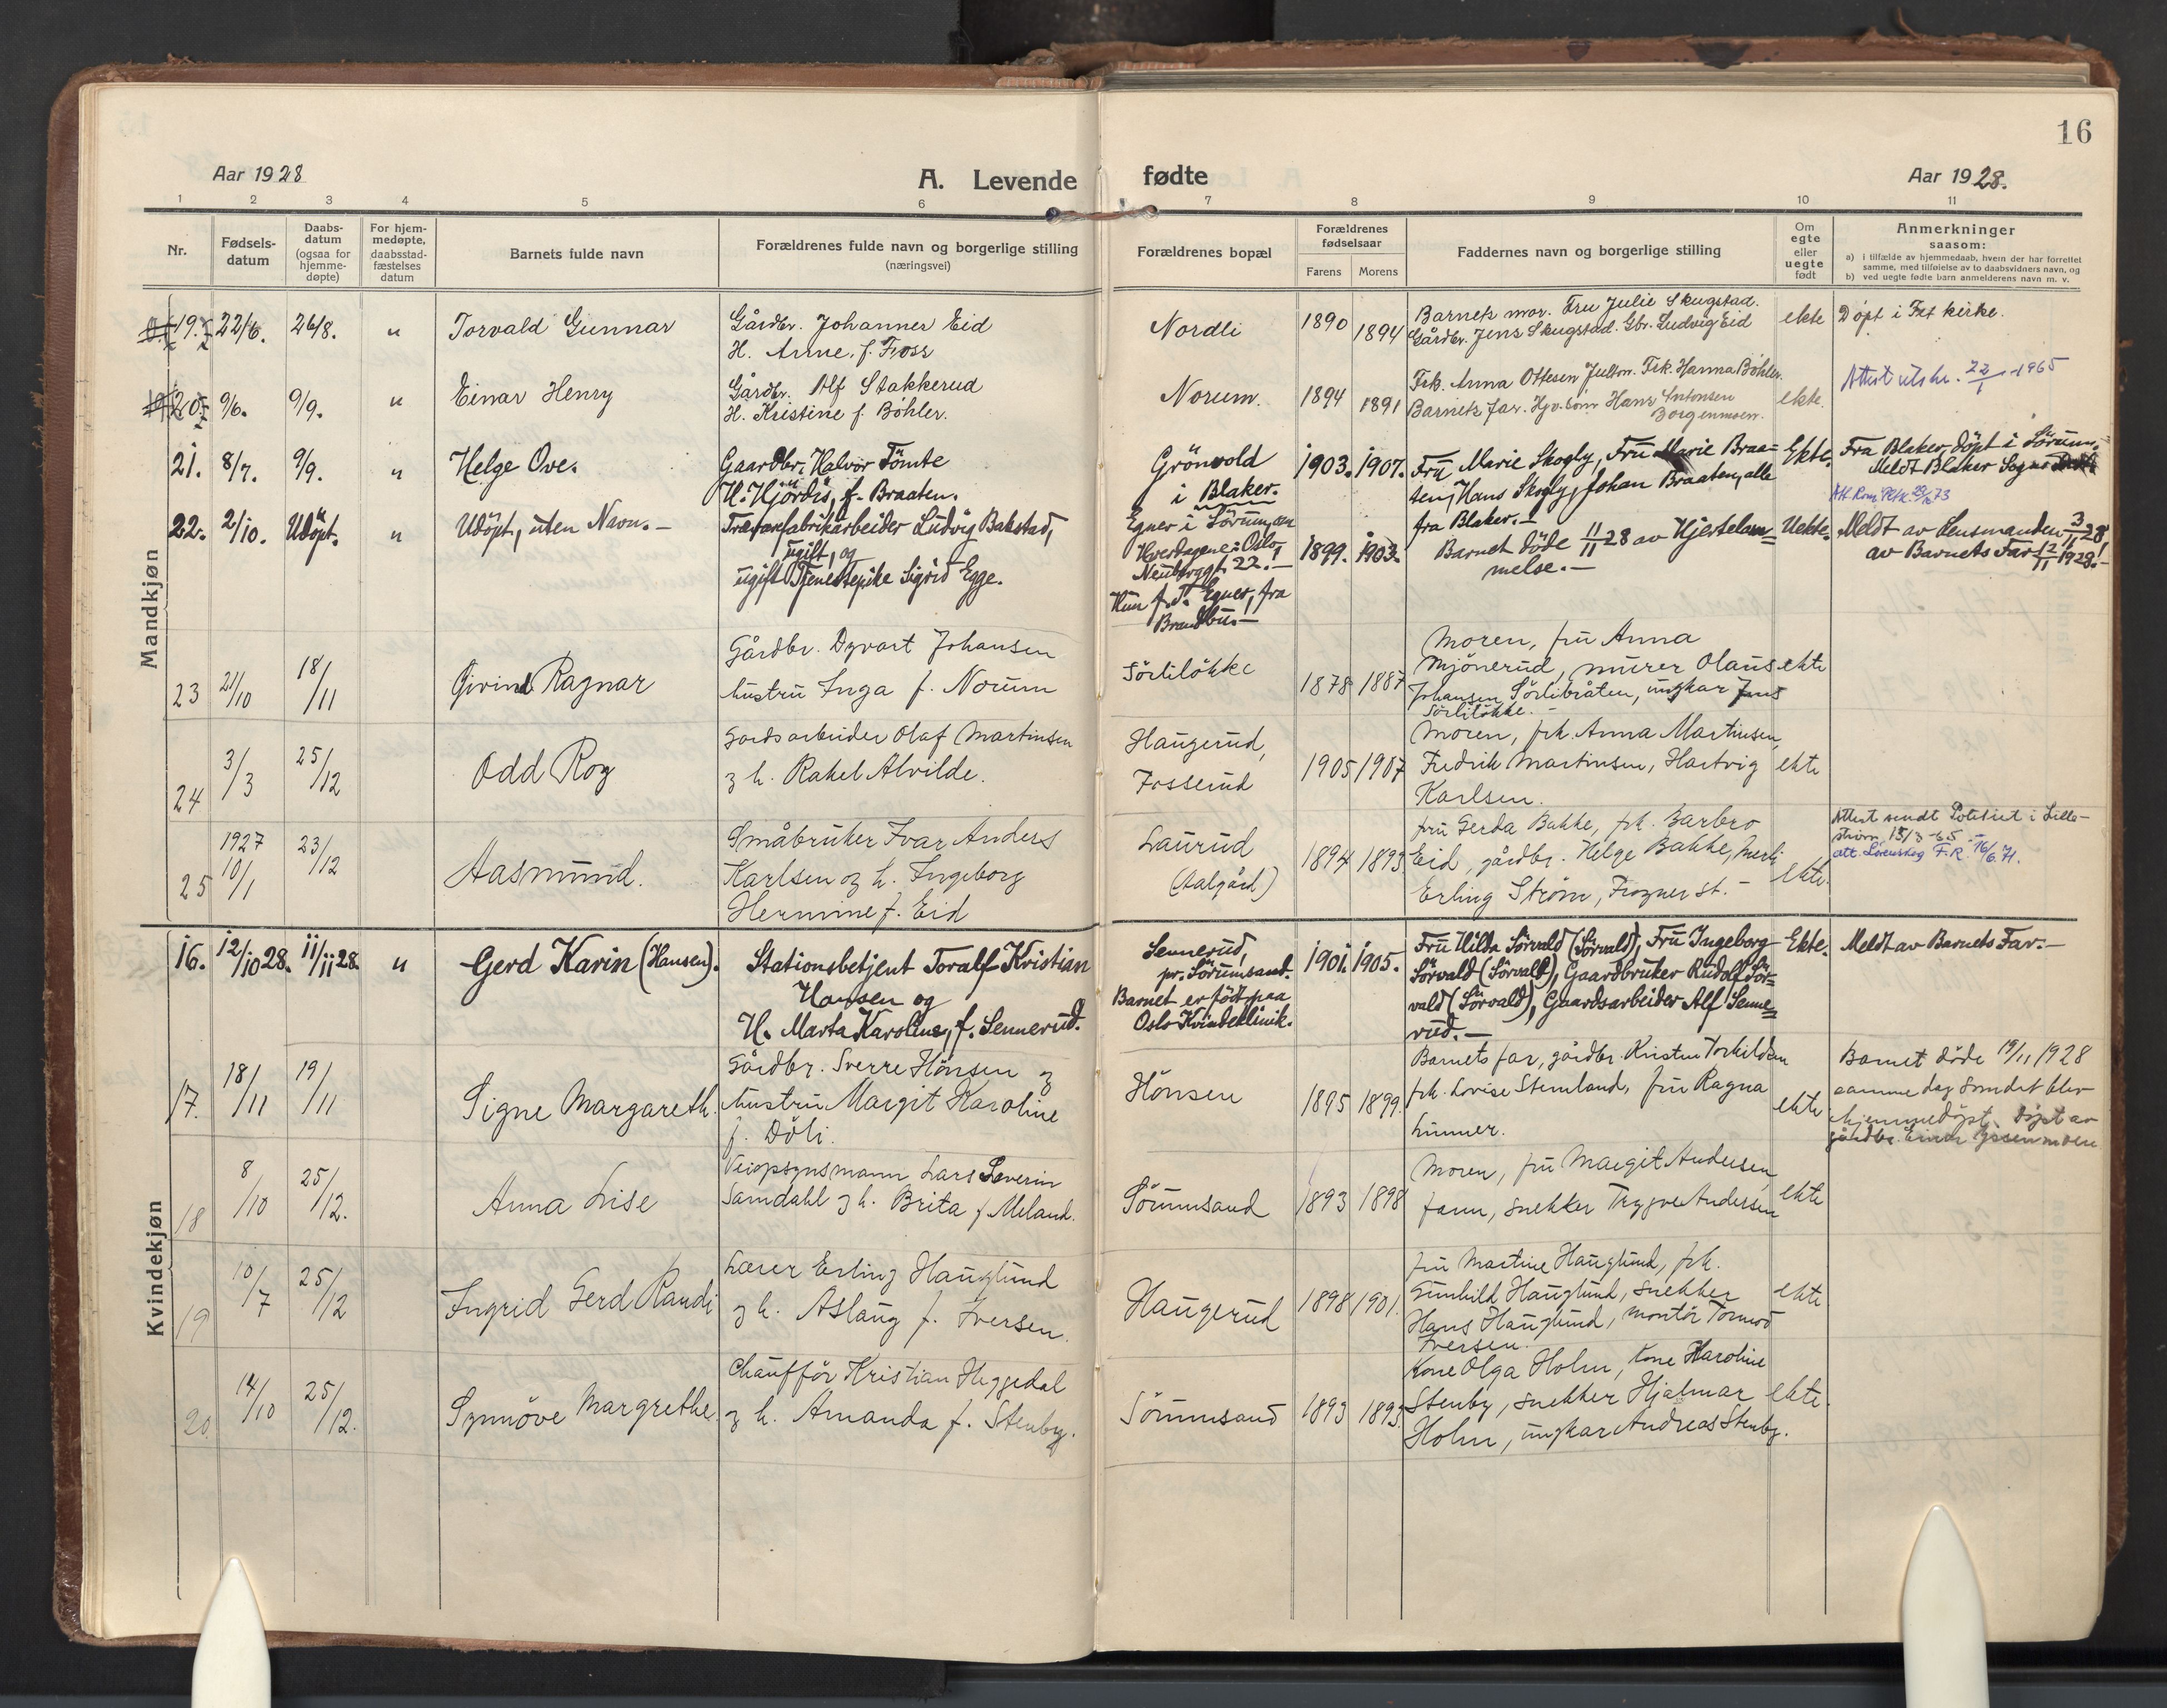 16
Aar 1928
A. Levende fødte
Aar 1928.
1 2 3 4 5 6 7 8 9 10 11
Nr.
Fødsels-
datum
Daabs-
datum
(ogsaa for
hjemme-
døpte)
For hjem-
medøpte,
daabsstad-
fæstelses
datum
Barnets fulde navn
Forældrenes fulde navn og borgerlige stilling
(næringsvei)
Forældrenes bopæl
Forældrenes
fødselsaar
Farens Morens
Faddernes navn og borgerlige stilling
Om
egte
eller
uegte
født
Anmerkninger
saasom:
a) i tilfælde av hjemmedaab, hvem der har forrettet
samme, med tilføielse av to daabsvidners navn, og
b) ved uegte fødte barn anmelderens navn m. v.
Mandkjøn
19. 22/6. 26/8. " Torvald Gunnar
Gårdbr. Johannes Eid
H. Anne, f. Foss
Nordli
1890 1894
Barnets mor. Fru Julie Skugstad.
Gårdbr. Jens Skugstad. Gbr. Ludvig Eid
ekte
Døpt i Fet kirke.
20. 9/6. 9/9. " Einar Henry
Gårdbr. Alf Stakkerud
H. Kristine f. Böhler.
Norum.
1894 1891
Frk. Anna Ottesen Frk. Hanna Böhler.
Barnets far. Hans Antonsen
Borgenmoen.
ekte.
Attest utskr. 22/1 - 1965
21. 8/7. 9/9. " Helge Ove.
Gaardbr. Halvor Tömte
H. Hjördis, f. Braaten.
Grönvold
i Blaker.
1903. 1907.
Fru Marie Skogly, Fru Marie Braa-
ten, Hans Skogly, Johan Braaten, alle
fra Blaker.-
Ekte.
Fra Blaker, döpt i Sörum.
Meldt Blaker Sogne
22. 2/10. Udöpt. " Udöpt, uten Navn.-
Trævarefabrikarbeider Ludvig Bakstad,
ugift, og
ugift Tjenestepike Sigrid Egge.
Egner i Sörum, an
Hverdagene i Oslo,
Neuberggt. 22.-
Hun f. T. Egner, fra
Brandbu.-
1899. 1903.
Barnet döde 11/11 28 av Hjertelam=
melse.-
Uekte.
Meldt av Lensmanden 3/11 28,
av Barnets Far 12/11 1928!-
23 21/10 18/11 Eivind Ragnar
Gårdbr. Dyvart Johansen
hustru Inga f. Norum
Sörliløkke
1878 1887
Moren, fru Anna
Mjönerud, murer Olaus
Johansen Sörlibråten, ungkar Jens
Sörliløkke.-
ekte
24 3/3 25/12 Odd Roy
Gårdsarbeider Olaf Martinsen
og h. Rakel Alvilde.
Haugerud,
Fosserud
1905 1907
Moren, frk. Anna Martinsen,
Fredrik Martinsen, Hartvig
Karlsen.
ekte
25 1927 10/1 23/12 Aasmund.
Småbruker Ivar Anders
Karlsen og h. Ingeborg
Hermine f. Eid
Laurud
(Aalgård)
1894 1893
fru Gerda Bakke, frk. Barbro
Eid, gårdbr. Helge Bakke,
Erling Ström, Frogner st.-
ekte.
Attest sendt Politiet i Lille-
ström 15/3 -65.-
att. Lörenskog F.R. 16/6.71.
Kvindekjøn
16. 12/10 28. 11/11 28. " Gerd Karin (Hansen).
Stationsbetjent Toralf Kristian
Hansen og
H. Marta Karoline, f. Sennerud.
Sennerud,
pr. Sörumsand.
Barnet er födt paa
Oslo Kvindeklinik.
1901. 1905.
Fru Hilda Sörvald (Sörvald), Fru Ingeborg
Sörvald (Sörvald), Gaardbruker Rudolf Sör=
vald (Sörvald), Gaardsarbeider Alf Senne=
rud.-
Ekte.
Meldt av Barnets Far.-
17. 18/11 19/11 Signe Margareth.
Gårdbr. Sverre Hönsen og
hustru Margit Karoline
f. Döli.
Hönsen
1895 1899.
Barnets far, gårdbr. Kristen Torkildsen
frk. Lovise Stemland, fru Ragna
Linner.
ekte
Barnet döde 19/11 1928
samme dag som det blev
hjemmedöpt. Döpt av
gårdbr. Einar
18 8/10 25/12. Anna Lise
Veiopsynsmann Lars Severin
Samdahl og h. Brita f. Meland.
Sörumsand
1893 1898
Moren, fru Margit Andersen,
faren, snekker Trygve Andersen
ekte
19 10/7 25/12 Ingrid Gerd Randi
Lærer Erling Hauglund
og h. Aslaug f. Iversen.
Haugerud
1898 1901.
fru Martine Hauglund, frk.
Gunhild Hauglund, snekker
Hans Hauglund, montör Tormod
Iversen.
ekte
20. 14/10 25/12. Synnöve Margrethe.
Chaufför Kristian Heggedal
og h. Amanda f. Stenby.
Sörumsand
1893 1893
Kone Olga Holm, Kone Karoline
Stenby, snekker Hjalmar
Holm, ungkar Andreas Stenby.
ekte.